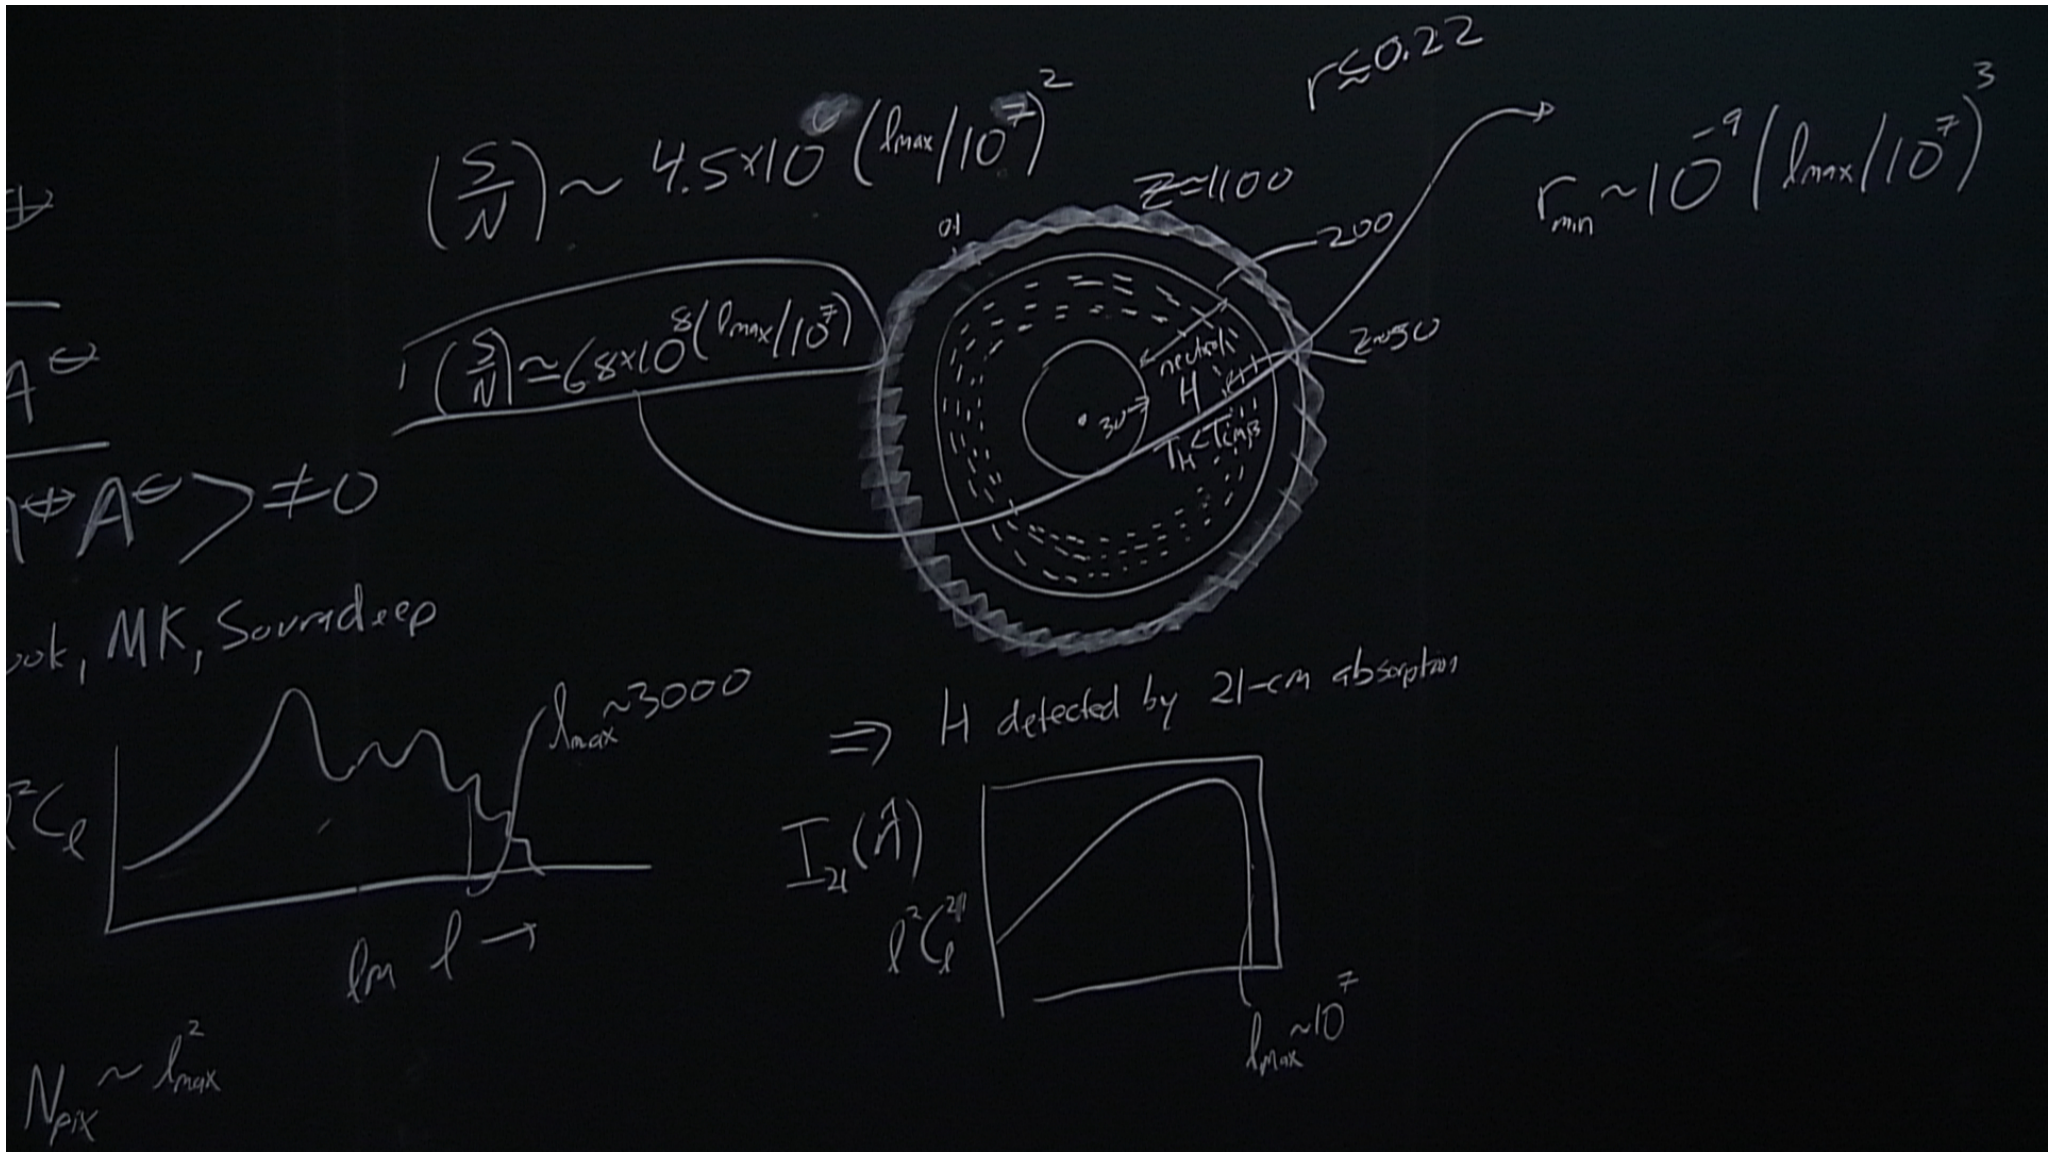 (S/N) ~ 4.5×10⁶ (lmax/10⁷)²
r ≲ 0.22
rmin ~ 10⁻⁹ (lmax/10⁷)³
z≈1100
200
z~50
(S/N) ≃ 68×10⁸ (lmax/10⁷)
neutral
H
30
T_H < T_CMB
A^⊖
A^⊖ > ≠ 0
MK, Souradeep
lmax ~ 3000
l²C_l
ln l →
N_pix ~ l²max
⇒ H detected by 21-cm absorption
I₂₁(n̂)
l²C_l²¹
lmax ~ 10⁷